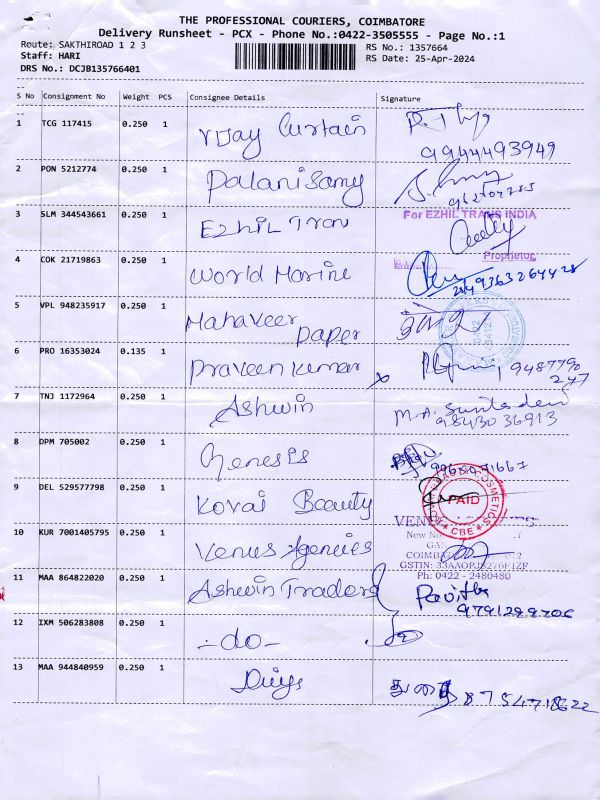 THE PROFESSIONAL COURIERS, COIMBATORE
Delivery Runsheet - PCX - Phone No.:0422-3505555 - Page No.:1
Route: SAKTHIROAD 1 2 3
RS No.: 1357664
Staff: HARI
RS Date: 25-Apr-2024
DRS No.: DCJB135766401
S No Consignment No Weight PCS Consignee Details Signature
1 TCG 117415 0.250 1 Vijay Curtain
9944493949
2 PON 5212774 0.250 1 Palanisamy
For EZHIL TRANS INDIA
3 SLM 344543661 0.250 1 EzhiL Tran
Proprietor
4 COK 21719863 0.250 1 World Marine
5 VPL 948235917 0.250 1 Mahaveer Paper
6 PRO 16353024 0.135 1 Praveen Kumar
9487790
247
7 TNJ 1172964 0.250 1 Ashwin
M.A.
98430 36913
8 DPM 705002 0.250 1 Genesis
9 DEL 529577798 0.250 1 Kovai Beauty
COSMETICS
PAID
CBE
10 KUR 7001405795 0.250 1 Venus Agencies
VENUS
New No.
COIMBATORE
Ph: 0422 - 2480480
11 MAA 864822020 0.250 1 Ashwin Traders Pavithra
9791299706
12 IXM 506283808 0.250 1 -do-
13 MAA 944840959 0.250 1